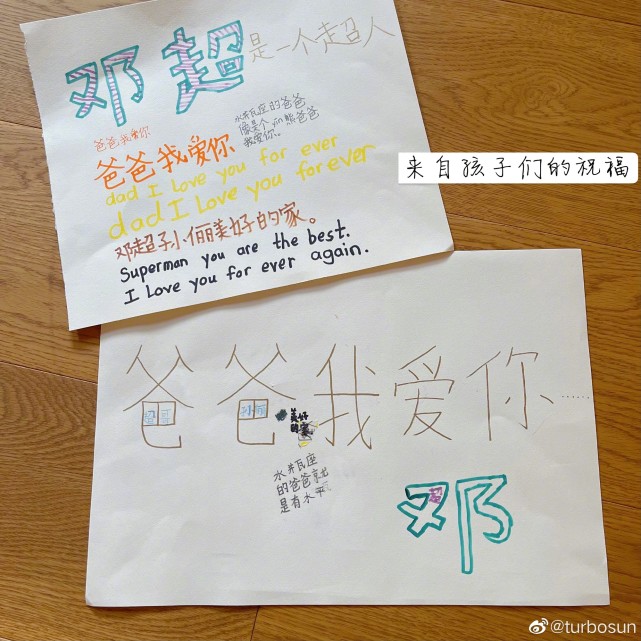 邓超是一个超人
爸爸,我爱你
水井瓦座的爸爸
像是个yin熊爸爸
我爱你。
爸爸我爱你
dad I love you for ever
dad I love you for ever
邓超孙俪美好的家。
Superman you are the best.
I Love you for ever again.
来自孩子们的祝福
爸爸我爱你……
美好
的家
水井瓦座
的爸爸就
是有水平
邓
@turbosun